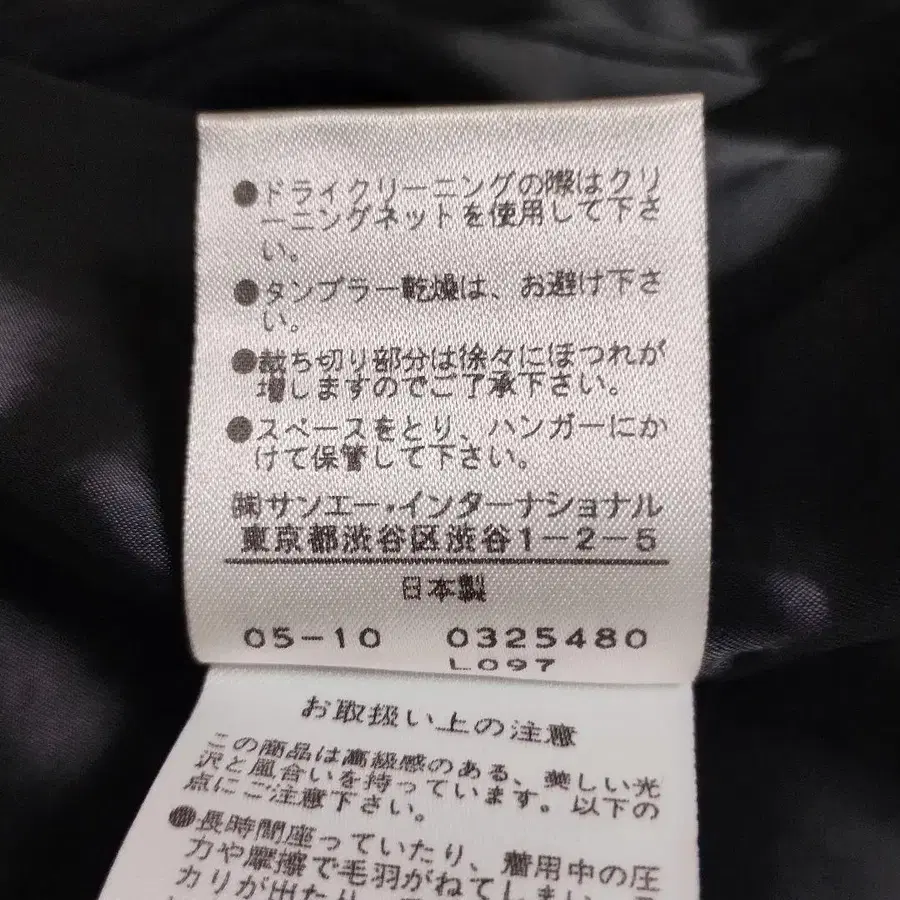 ●ドライクリーニングの際はクリ
ーニングネットを使用して下さ
い。
●タンブラー乾燥は、お避け下さ
い。
●裁ち切り部分は徐々にほつれが
増しますのでご了承下さい。
●スペースをとり、ハンガーにか
けて保管して下さい。
㈱サンエー・インターナショナル
東京都渋谷区渋谷1-2-5
日本製
05-10 0325480
L097
お取扱い上の注意
この商品は高級感のある、美しい光
沢と風合いを持っています。以下の
点にご注意下さい。
●長時間座っていたり、着用中の圧
力や摩擦で毛羽がねてしまい、
カリが出たり